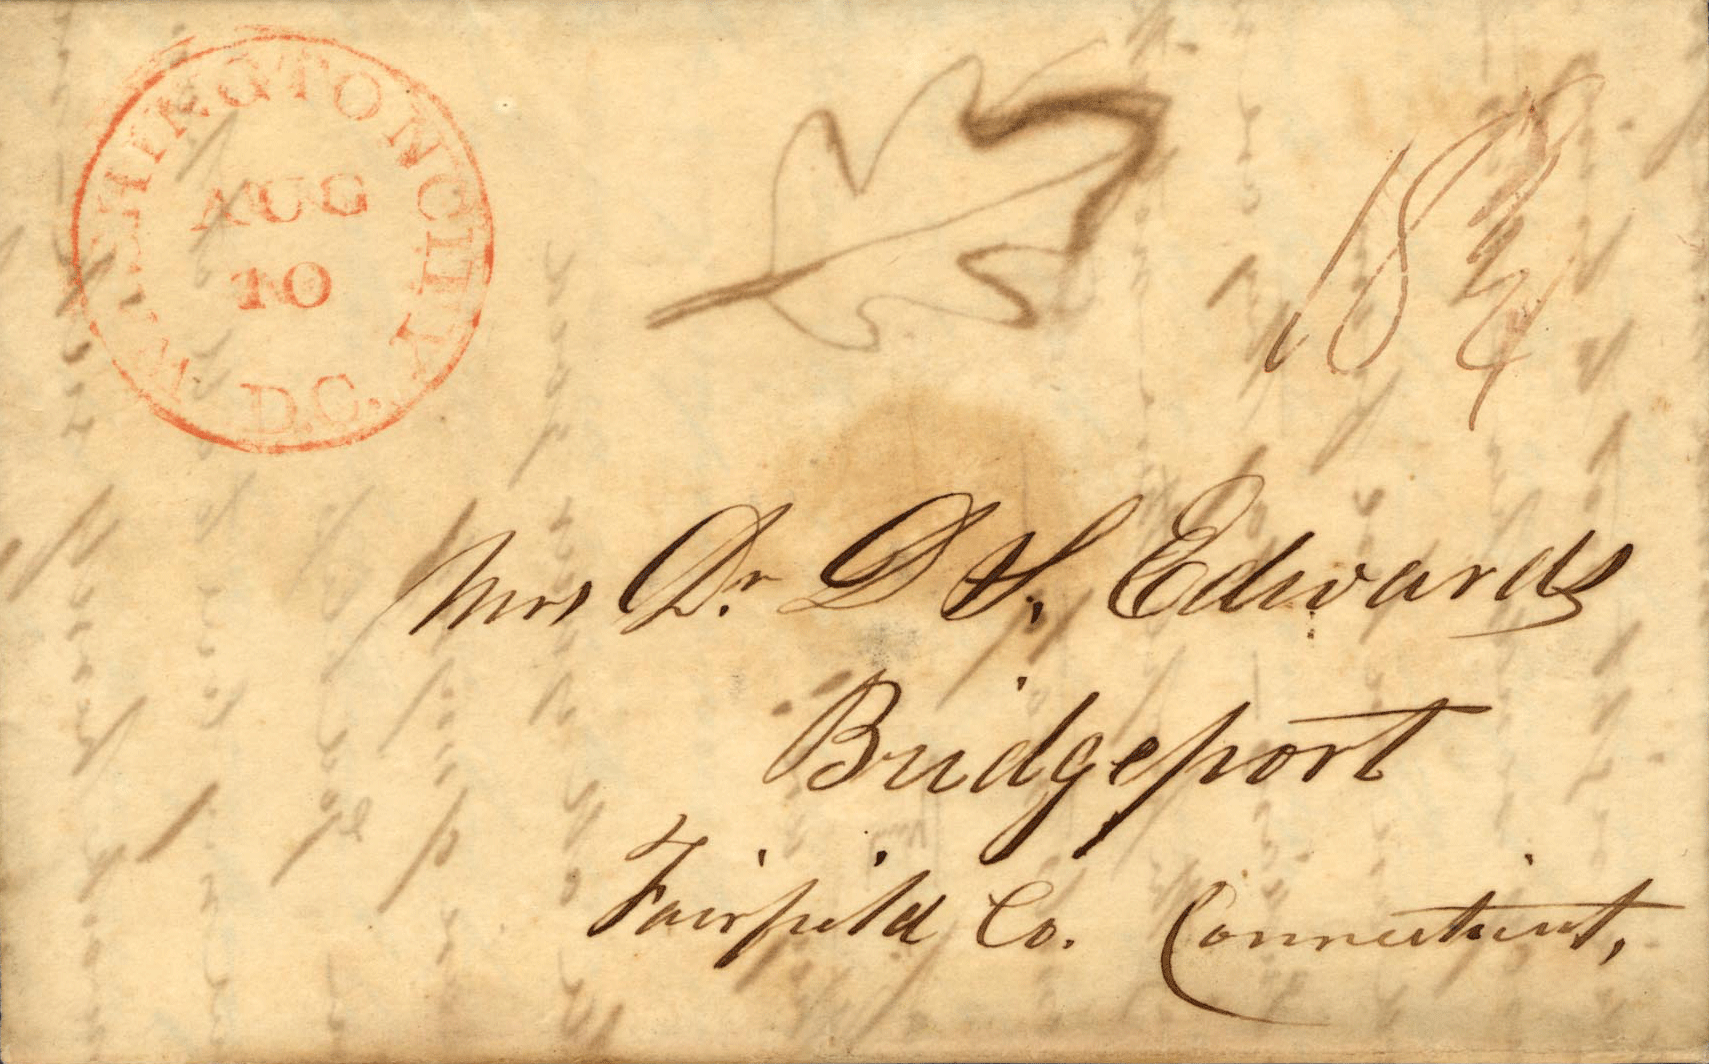 WASHINGTON CITY
AUG
10
D.C.
18 3/4
Mrs Dr. D S. Edwards
Bridgeport
Fairfield Co. Connecticut,